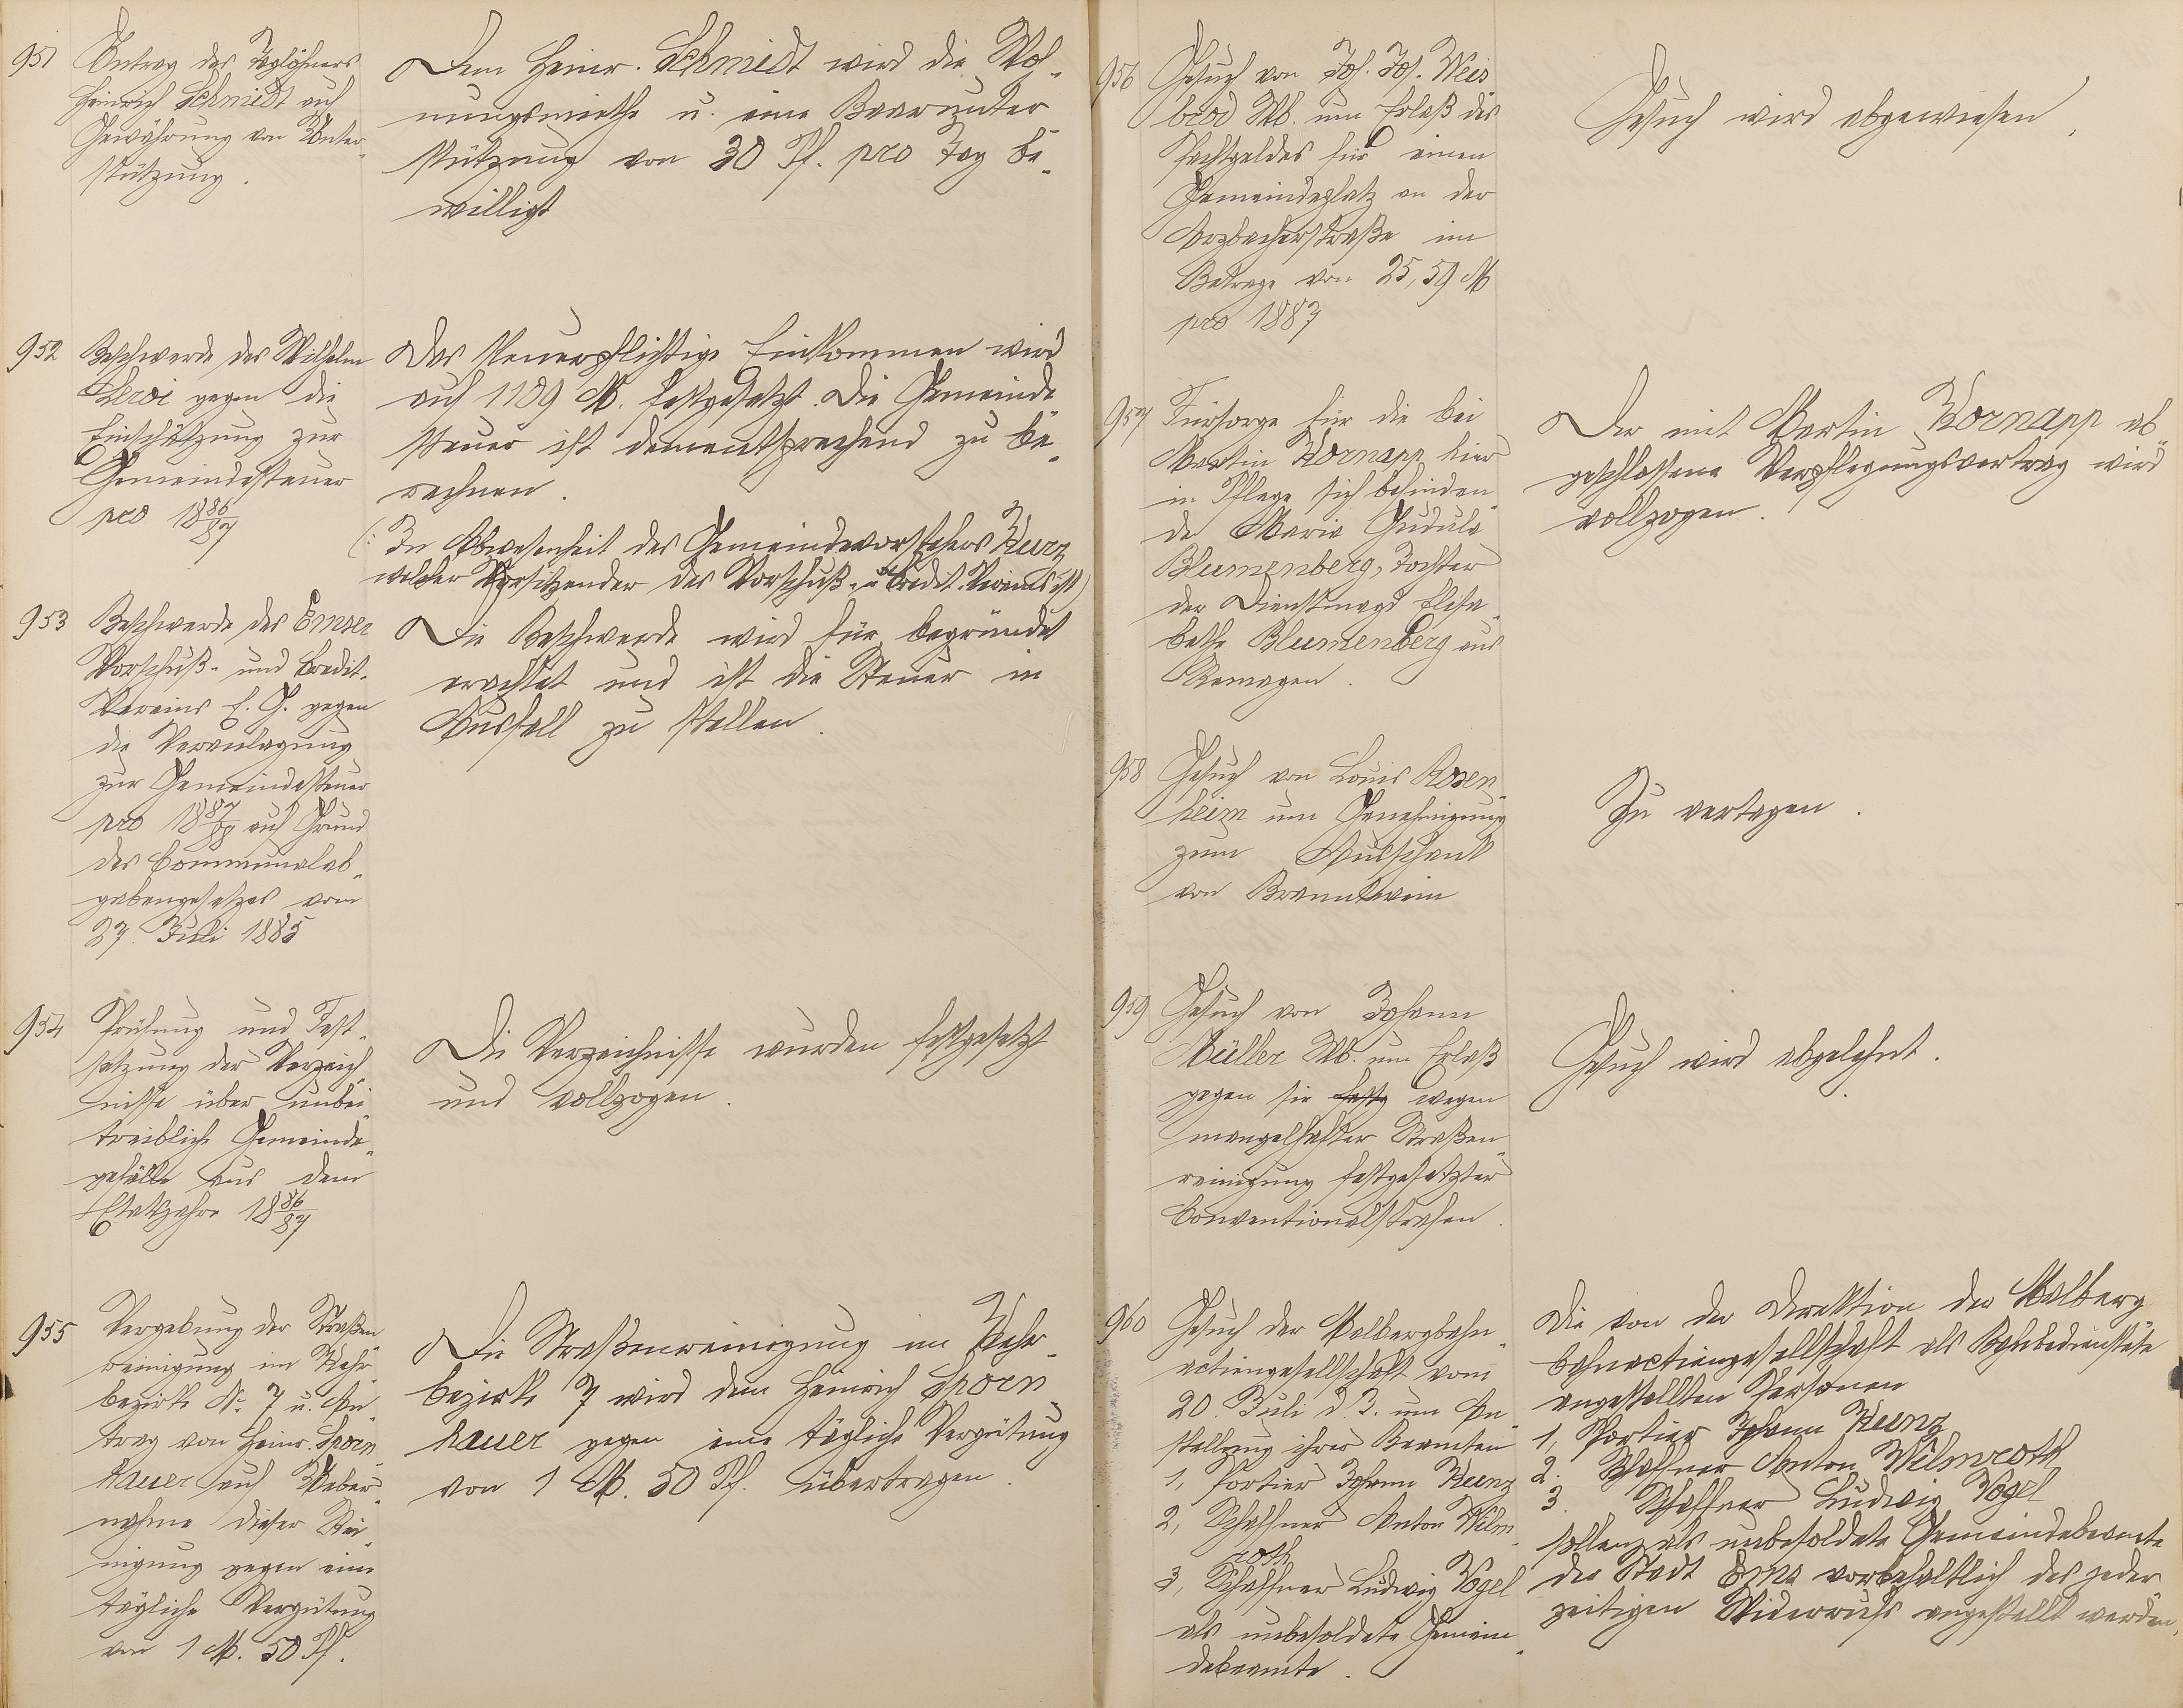 951
Antrag des Taglöhners
Heinrich Schmidt auf
Gewährung von Unter-
stützung.
Dem Heinr. Schmidt wird die Woh-
nungsmiethe u. eine Baarunter
stützung von 30 Pf. pro Tag be-
willigt
952
Beschwerde des Wilhelm
Leroi gegen die
Einschätzung zur
Gemeindesteuer
pro 1886/87
Das steuerpflichtige Einkommen wird
auf 1109 M. festgesetzt. Die Gemeinde
steuer ist dementsprechend zu be-
rechnen.
(: In Abwesenheit des Gemeindevorstehers Kurz
welcher Vorsitzender des Vorschuß- u. Credit-Vereins ist)
953
Beschwerde des Emser
Vorschuß- und Credit-
Vereins E. G. gegen
die Veranlagung
zur Gemeindesteuer
pro 1887/88 auf Grund
des Communalab-
gabengesetzes vom
27. Juli 1885
Die Beschwerde wird für begründet
erachtet und ist die Steuer in
Ausfall zu stellen.
954
Prüfung und Fest-
setzung der Verzeich-
nisse über unbei-
treibliche Gemeinde-
gefälle aus dem
Etatsjahre 1886/87
Die Verzeichnisse wurden festgesetzt
und vollzogen.
955
Vergebung der Straßen
reinigung im Kehr-
bezirke No. 7 u. An-
trag von Heinr. Sporn
hauer auf Ueber-
nahme dieser Rei-
nigung gegen eine
tägliche Vergütung
von 1 M. 50 Pf.
Die Straßenreinigung im Kehr-
bezirke 7 wird dem Heinrich Sporn-
hauer gegen eine tägliche Vergütung
von 1 M. 50 Pf. übertragen.
956
Gesuch von Joh. Jos. Weis
brod Wb. um Erlaß des
Pachtgeldes für einen
Gemeindeplatz an der
Arzbacherstraße im
Betrage von 25,59 M
pro 1887
Gesuch wird abgewiesen,
957
Fürsorge für die bei
Martin Kornapp hier
in Pflege sich befinden-
de Maria Gudula
Blumenberg, Tochter
der Dienstmagd Elisa-
betha Blumenberg aus
Remagen.
Der mit Martin Kornapp ab-
geschlossene Verpflegungsvertrag wird
vollzogen.
958
Gesuch von Louis Rosen-
heim um Genehmigung
zum Ausschank
von Branntwein
Zu vertagen.
959
Gesuch von Johann
Müller Wb. um Erlaß
gegen sie wegen
mangelhafter Straßen-
reinigung festgesetzter
Conventionalstrafen.
Gesuch wird abgelehnt.
960
Gesuch der Malbergbahn-
actiengesellschaft vom
20. Juli d. J. um An-
stellung ihrer Beamten
1, Portier Johann Kunz
2, Schaffner Anton Wilm-
roth
3, Schaffner Ludwig Vogel
als unbesoldete Gemein-
debeamte.
Die von der Direktion der Malberg
bahnactiengesellschaft als Bahnbedienstete
angestellten Personen
1, Portier Johann Kunz
2. Schaffner Anton Wilmroth
3. Schaffner Ludwig Vogel
sollen als unbesoldete Gemeindebeamte
der Stadt Ems vorbehaltlich des jeder
zeitigen Widerrufs angestellt werden,